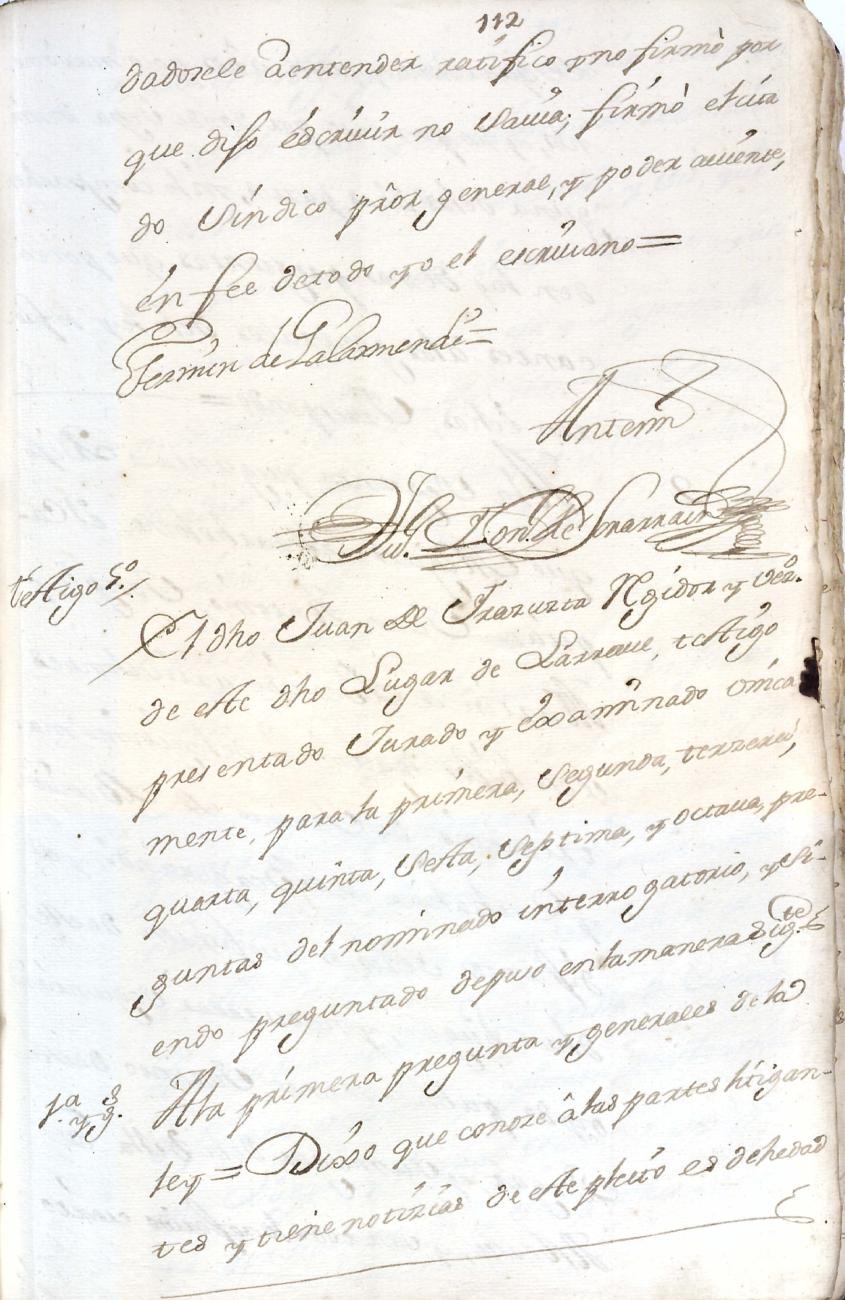 112
dadosele aentender ratifico y no firmò por
que dijo escriuir no Sauia; firmò el cita
do Sindico pror general, y poder auiente,
en fee detodo yo el escriuano =
Fermin de Galarmendi =
Antemi
Testigo 5.º
El dho Juan de Irazuzta Regidor y vezº.
de este dho Lugar de Larraue, testigo
presentado Jurado y examinado vnica
mente, para la primera, Segunda, terzera,
quarta, quinta, Sesta, Septima, y octaua, pre-
guntas del nominado interrogatorio, y Si-
endo preguntado depuso enlamanera Sigte
1.ª y g.s
Ala primera pregunta y generales de la
ley = Dixo que conoze â las partes litigan-
tes y tiene notizias de este pleito es dehedad